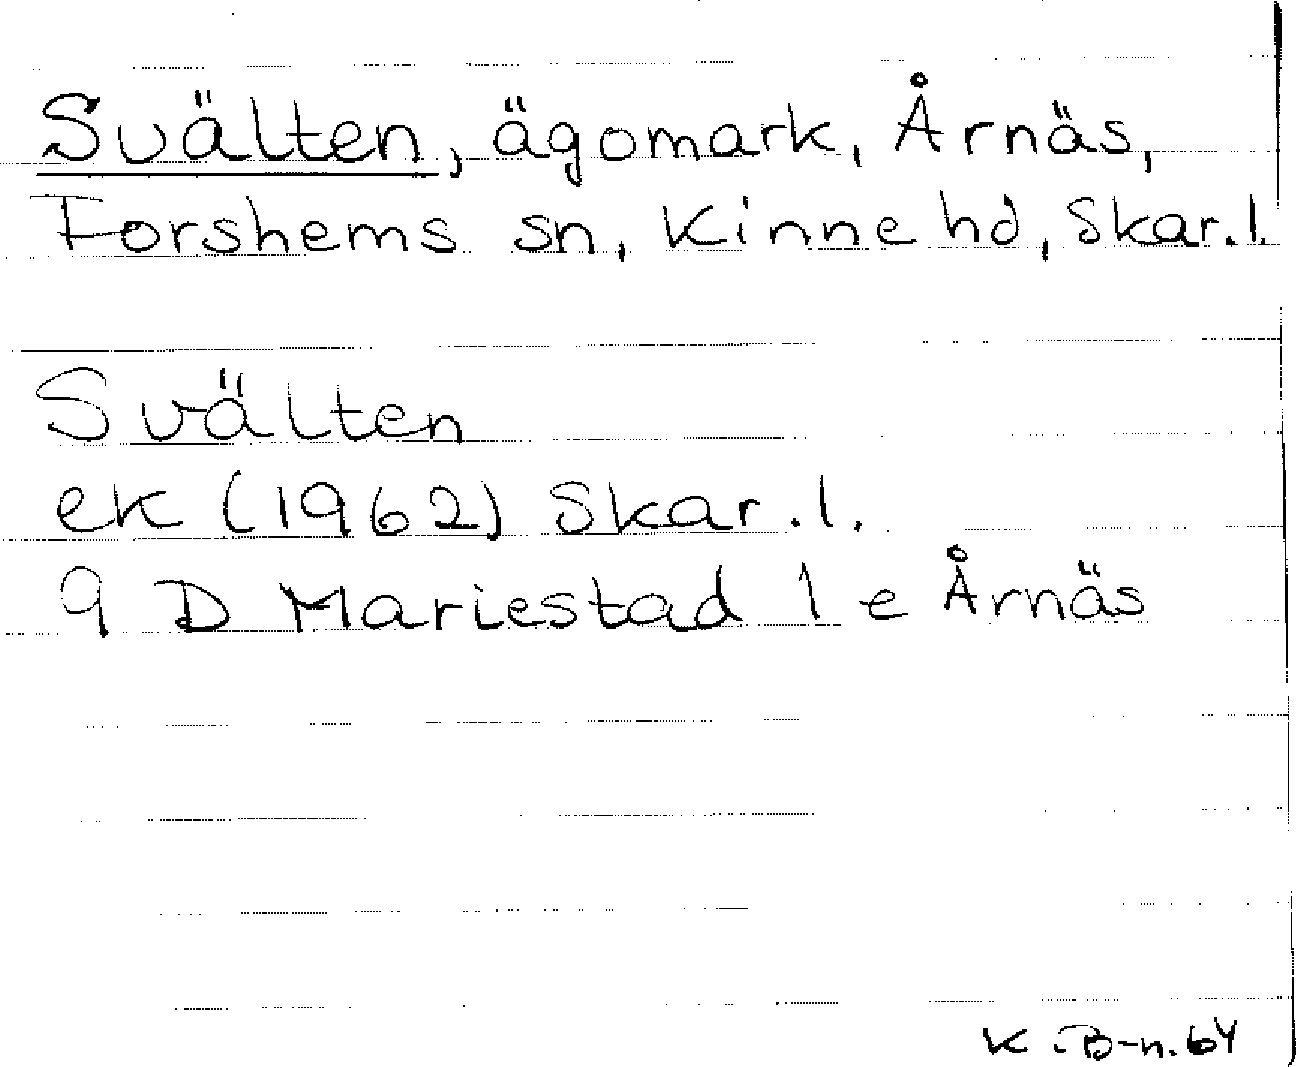 Svälten, ägomark, Årnäs,
Forshems sn, Kinne hd, Skar.l.
Svälten
ek (1962) Skar.l.
9 D Mariestad 1 e Årnäs
K.B-n.64